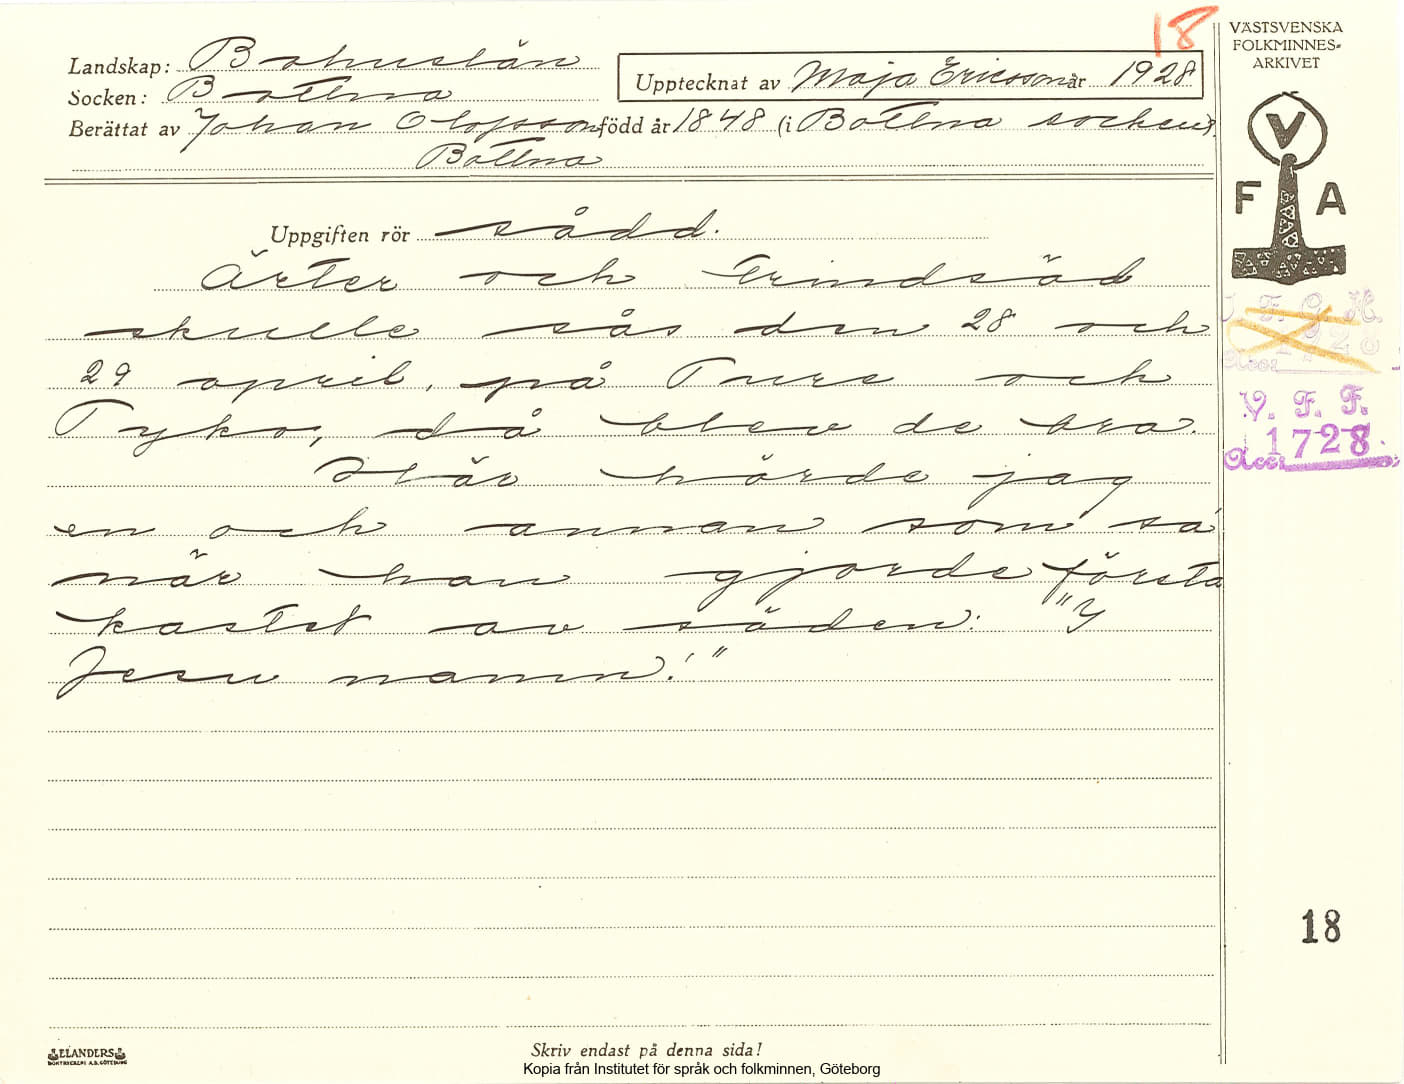 18
VÄSTSVENSKA
FOLKMINNES-
ARKIVET
Landskap: Bohuslän
Socken: Bottna
Upptecknat av Maja Ericsson år 1928
Berättat av Johan Olofsson född år 1848 (i Bottna socken).
Bottna
V
F A
Uppgiften rör sådd.
Ärter och grindsäd
skulle sås den 28 och
29 april, på Ture och
Tyko, då blev de bra.
Här hörde jag
en och annan som sa
när han gjorde första
kastet av säden: "I
Jesu namn!"
V. F. F.
Acc: 1728
18
ELANDERS
Skriv endast på denna sida!
Kopia från Institutet för språk och folkminnen, Göteborg